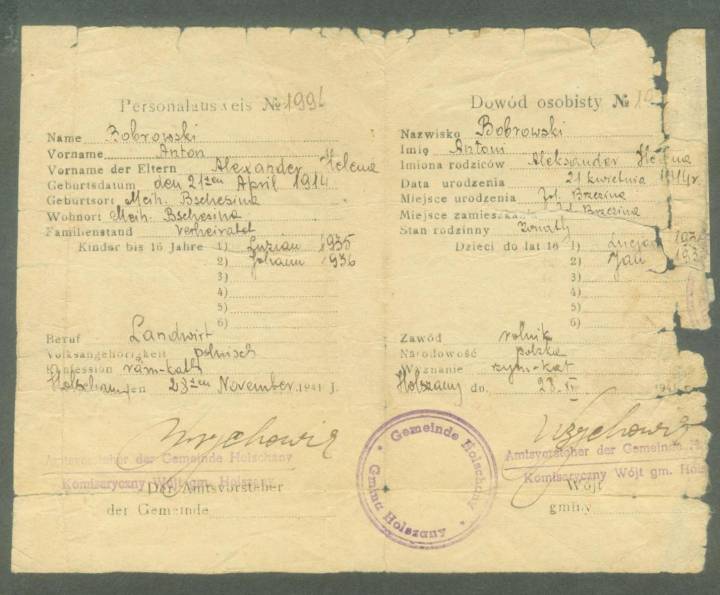 Personalausweis № 1991
Name Bobrowski
Vorname Anton
Vorname der Eltern Alexander Helena
Geburtsdatum den 21ten April 1914
Geburtsort Meih. Bschesina
Wohnort Meih. Bschesina
Familienstand verheiratet
Kinder bis 16 Jahre 1) Luzian 1935
2) Johann 1936
3)
4)
5)
6)
Beruf Landwirt
Volksangehörigkeit polnisch
Konfession röm-kath
Holschany den 23ten November 1941 J.
Amtsvorsteher der Gemeinde Holschany
Komisaryczny Wójt gm. Holszany
Der Amtsvorsteher
der Gemeinde
Gemeinde Holschany
Gmina Holszany
Dowód osobisty № 19
Nazwisko Bobrowski
Imię Antoni
Imiona rodziców Aleksander Helena
Data urodzenia 21 kwietnia 1914 r.
Miejsce urodzenia Brzezina
Miejsce zamieszkania Brzezina
Stan rodzinny żonaty
Dzieci do lat 16 1) Lucjan 193
2) Jan 193
3)
4)
5)
6)
Zawód rolnik
Narodowość polska
Wyznanie rzym-kat
Holszany dn. 23 XI 1941 r.
Amtsvorsteher der Gemeinde
Komisaryczny Wójt gm. Hol
Wójt
gminy